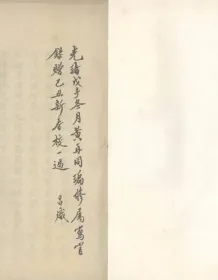 光緒戊子冬月黃再同編修屬寫官
錄贈己丑新春校一過 昌熾